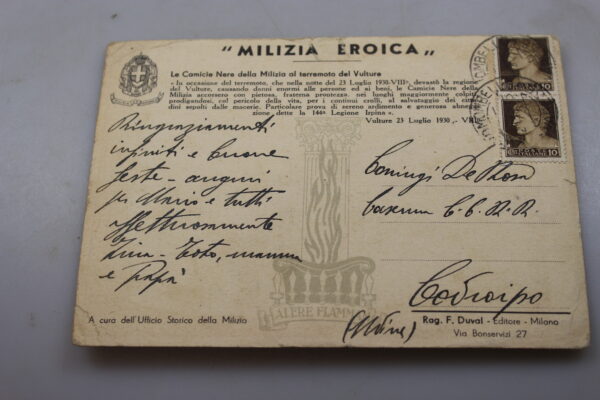 "MILIZIA EROICA„
Le Camicie Nere della Milizia al terremoto del Vulture
«In occasione del terremoto, che nella notte del 23 Luglio 1930-VIII°, devastò la regione
del Vulture, causando danni enormi alle persone ed ai beni, le Camicie Nere della
Milizia accorsero con pietosa, fraterna prontezza, nei luoghi maggiormente colpiti,
prodigandosi, col pericolo della vita, per i continui crolli, al salvataggio dei citta-
dini sepolti dalle macerie. Particolare prova di sereno ardimento e generosa abnega-
zione, dette la 144ª Legione Irpina».
Vulture 23 Luglio 1930,- VIII
10
10
Ringraziamenti
infiniti e buone
feste - auguri
per Mario e tutti
affettuosamente
Zina - Toto, mamma
e Papà
De Rosa
Caserma C.C. R.R.
Codroipo
(Udine)
ALERE FLAMMAM
A cura dell'Ufficio Storico della Milizia
Rag. F. Duval - Editore - Milano
Via Bonservizi 27